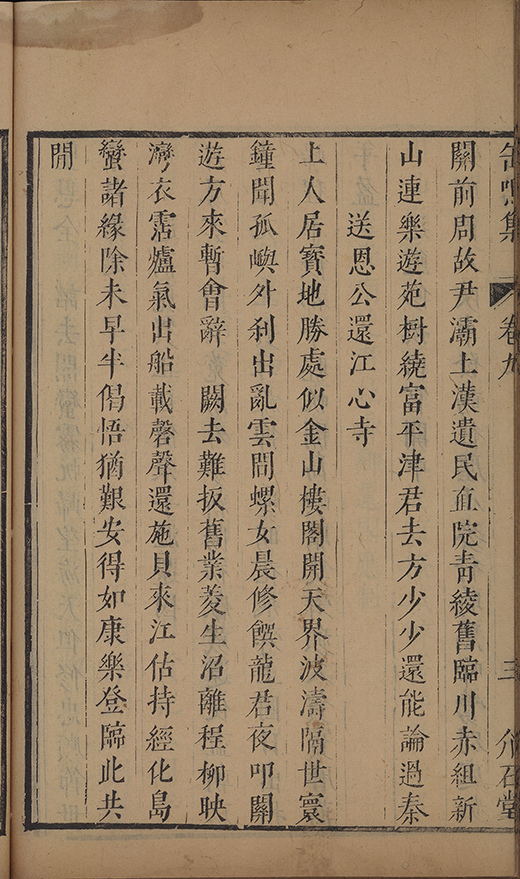 缶鳴集 卷九 三 介石堂
關前問故尹灞上漢遺民直院青綾舊臨川赤組新
山連樂遊苑樹繞富平津君去方少少還能論過秦
送恩公還江心寺
上人居寶地勝處似金山樓閣開天界波濤隔世寰
鐘聞孤嶼外刹出亂雲間螺女晨修饌龍君夜叩關
遊方來暫會辭 闕去難扳舊業菱生沼離程柳映
灣衣霑爐氣出船載磬聲還施貝來江估持經化島
蠻諸緣除未早半偈悟猶艱安得如康樂登臨此共
閒